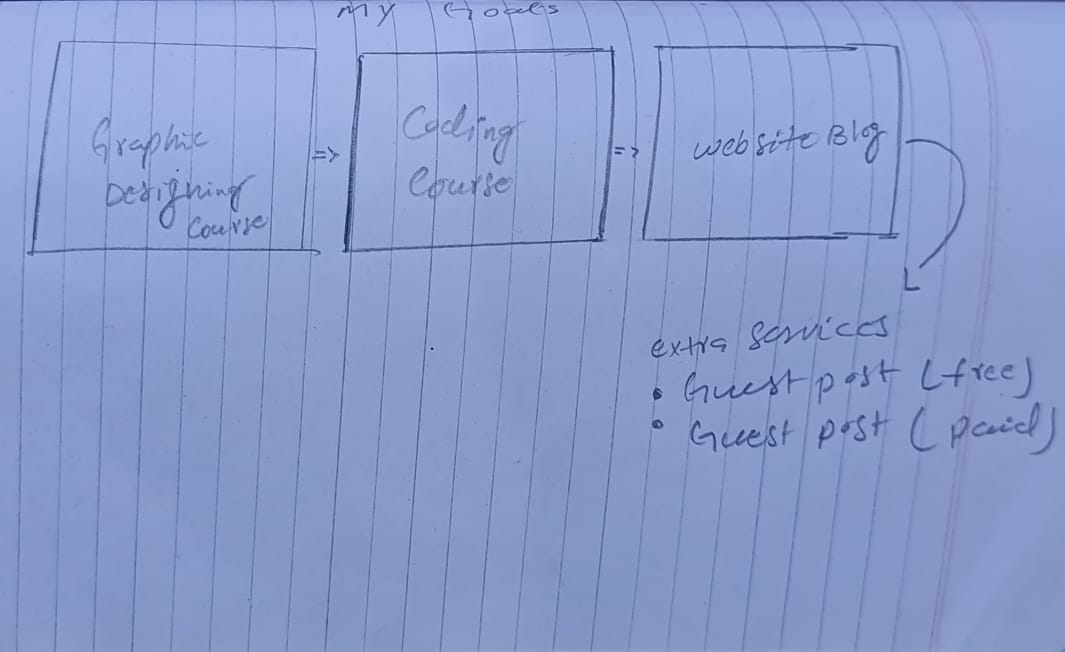 My Goals
Graphic
Designing
Course
=>
Coding
Course
=>
Website Blog
extra services
• Guest post (free)
• Guest post (paid)